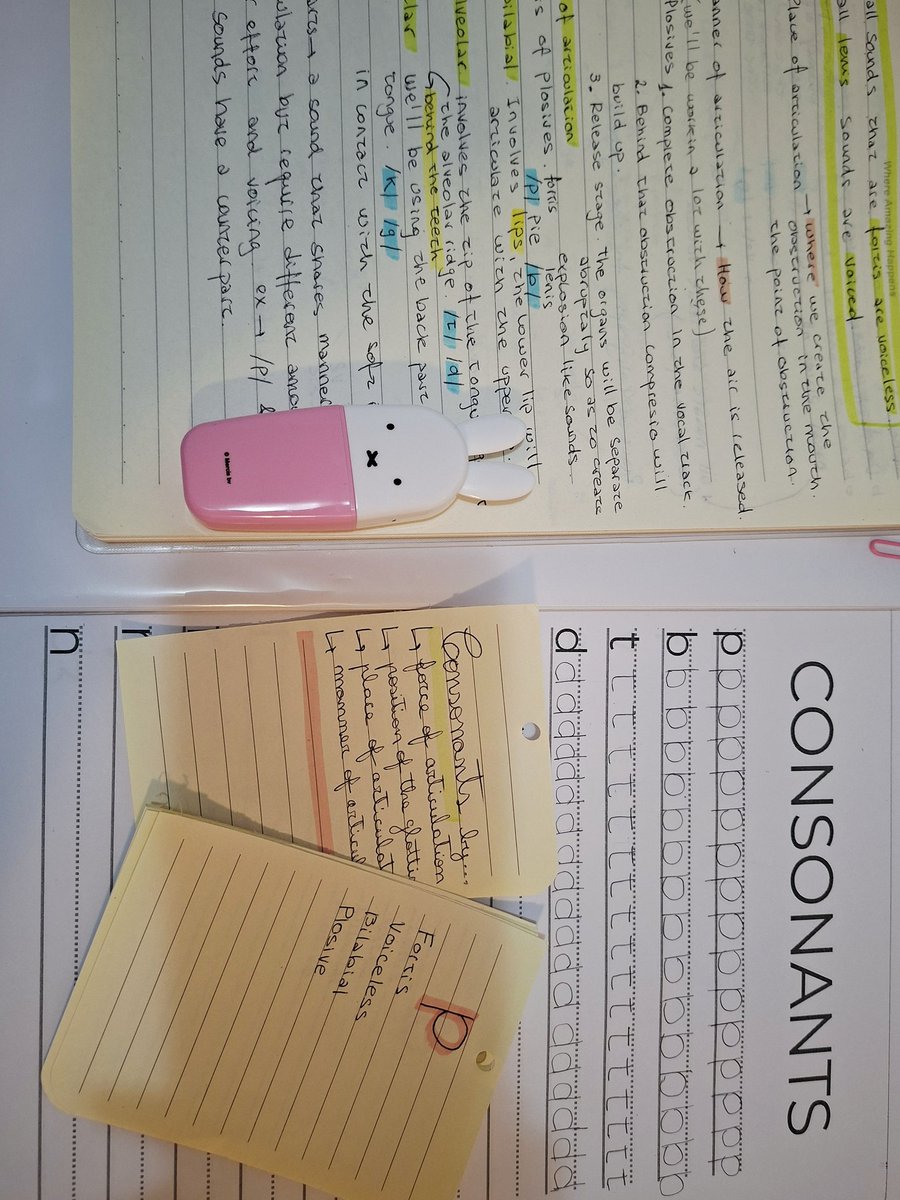 Where Amazing Happens
all sounds that are fortis are voiceless
all lenis sounds are voiced
Place of articulation → where we create the
obstruction in the mouth.
the point of obstruction.
anner of articulation → How the air is released.
(we'll be workin a lot with these)
Plosives 1. complete obstruction in the vocal track.
2. Behind that obstruction compresio will
build up.
3. Release stage. the organs will be separate
abruptaly so as to create
explosion like sounds
of articulation
s of plosives. /p/ pie /b/
fortis
lenis
bilabial. Involves lips, the lower lip will
articulate with the upper
lveolar involves the tip of the tongu
↳ the alveolar ridge. /t/ /d/
↳ behind the teeth
lar we'll be using the back part
tongue. /k/ /g/
in contact with the soft
arts → a sound that shares manner
ulation but require different amo
effort and voicing ex → /p/ &
sounds have a counterpart.
© Mercis bv
CONSONANTS
p p p p p p p p p p p p p
b b b b b b b b b b b b b
t t t t t t t t t t t t t t t
d d d d d d d d d d d d d
r
n
Consonants by...
↳ force of articulation
↳ position of the glotti
↳ place of articulat
↳ manner of articul
p
Fortis
Voiceless
Bilabial
Plosive